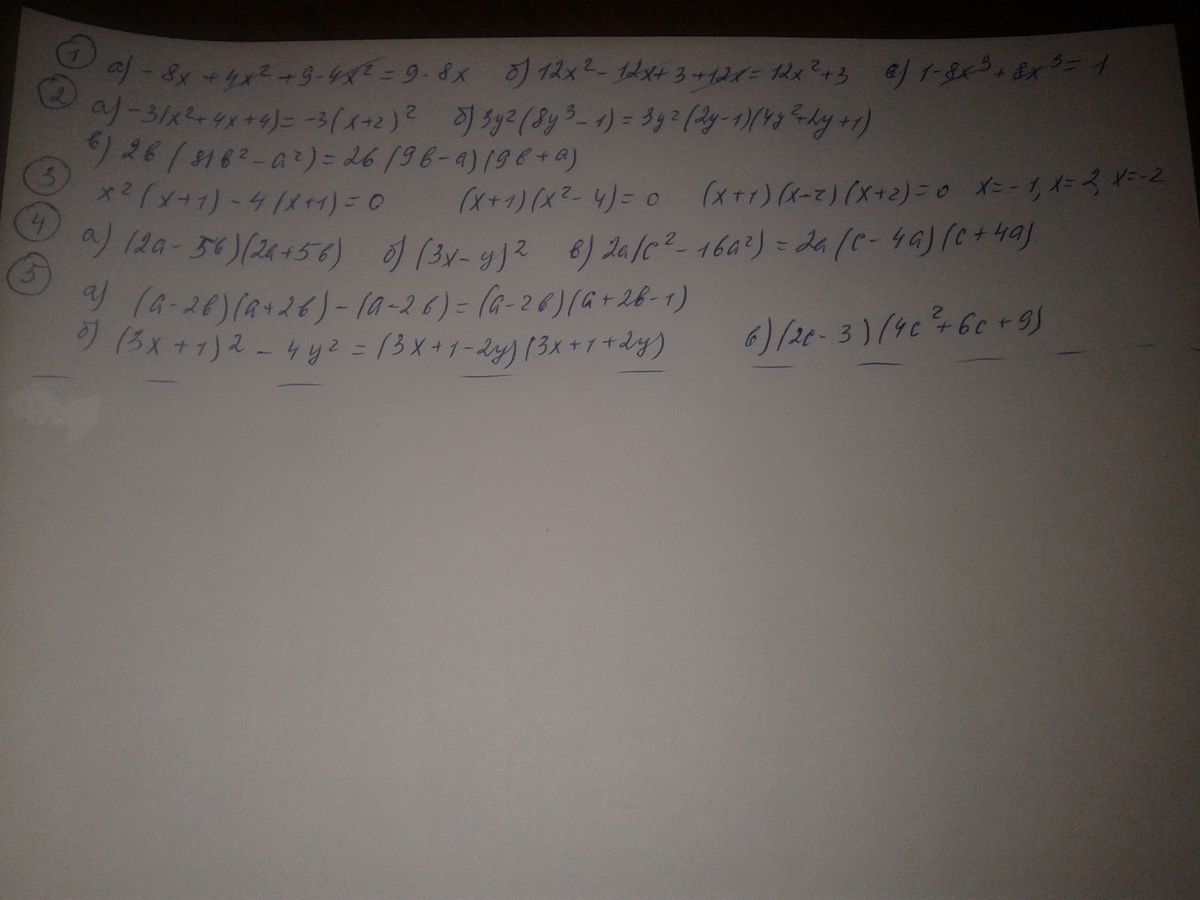 ① а) - 8x + 4x² + 9 - 4x² = 9 - 8x б) 12x² - 12x + 3 + 12x = 12x² + 3 в) 1 - 8x³ + 8x³ = 1
② а) -3(x² + 4x + 4) = -3(x+2)² б) 3y²(8y³ - 1) = 3y²(2y-1)(4y²+2y+1)
в) 2b(81b² - a²) = 2b(9b-a)(9b+a)
③ x²(x+1) - 4(x+1) = 0 (x+1)(x²-4) = 0 (x+1)(x-2)(x+2) = 0 x=-1, x=2, x=-2
④ а) (2a - 5b)(2a+5b) б) (3x - y)² в) 2a(c² - 16a²) = 2a(c - 4a)(c + 4a)
⑤ а) (a-2b)(a+2b) - (a-2b) = (a-2b)(a+2b-1)
б) (3x + 1)² - 4y² = (3x+1-2y)(3x+1+2y) в) (2c - 3)(4c² + 6c + 9)